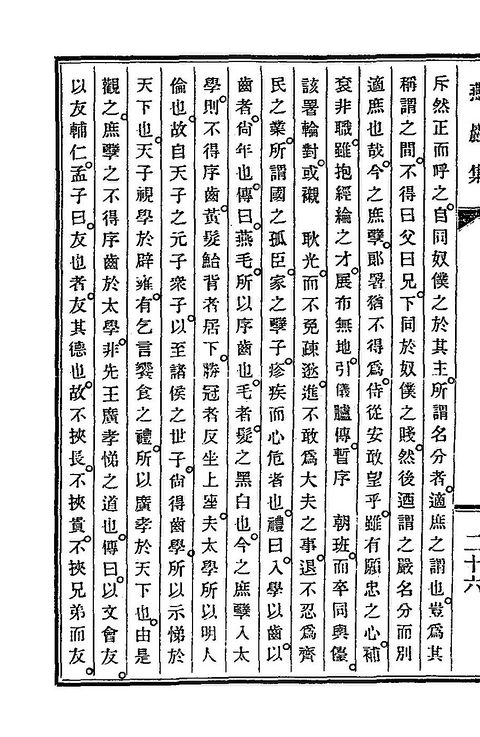 燕巖集
二十六
斥然正而呼之自同奴僕之於其主所謂名分者適庶之謂也豈爲其
稱謂之間不得曰父曰兄下同於奴僕之賤然後迺謂之嚴名分而別
適庶也哉今之庶孽郞署猶不得爲侍從安敢望乎雖有願忠之心補
袞非職雖抱經綸之才展布無地引儀臚傳暫序　朝班而卒同輿儓
該署輪對或襯　耿光而不免疎逖進不敢爲大夫之事退不忍爲齊
民之業所謂國之孤臣家之孽子疹疾而心危者也禮曰入學以齒以
齒者尙年也傳曰燕毛所以序齒也毛者髮之黑白也今之庶孽入太
學則不得序齒黃髮鮐背者居下勝冠者反坐上座夫太學所以明人
倫也故自天子之元子衆子以至諸侯之世子尙得齒學所以示悌於
天下也天子視學於辟雍有乞言饗食之禮所以廣孝於天下也由是
觀之庶孽之不得序齒於太學非先王廣孝悌之道也傳曰以文會友
以友輔仁孟子曰友也者友其德也故不挾長不挾貴不挾兄弟而友